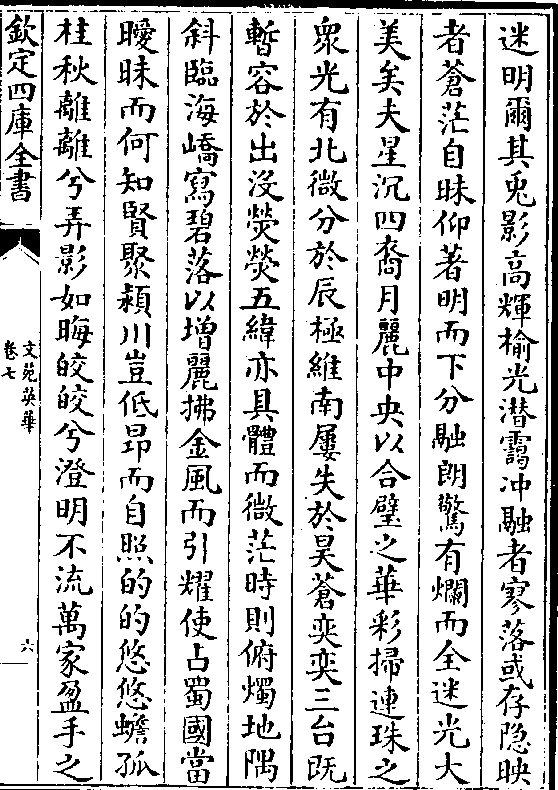 迷明爾其兎影高輝榆光潜靄冲融者寥落或存隐映
者蒼茫自昧仰著明而下分融朗驚有爛而全迷光大
美矣夫星沉四裔月麗中央以合璧之華彩掃連珠之
衆光有北微分於辰極維南屢失於昊蒼奕奕三台既
暫容於出没熒熒五緯亦具體而微茫時則俯燭地隅
斜臨海嶠寫碧落以增麗拂金風而引耀使占蜀國當
曖昧而何知賢聚潁川豈低昂而自照的的悠悠蟾孤
桂秋離離兮弄影如晦皎皎兮澄明不流萬家盈手之
欽定四庫全書
文苑英華
卷七
六